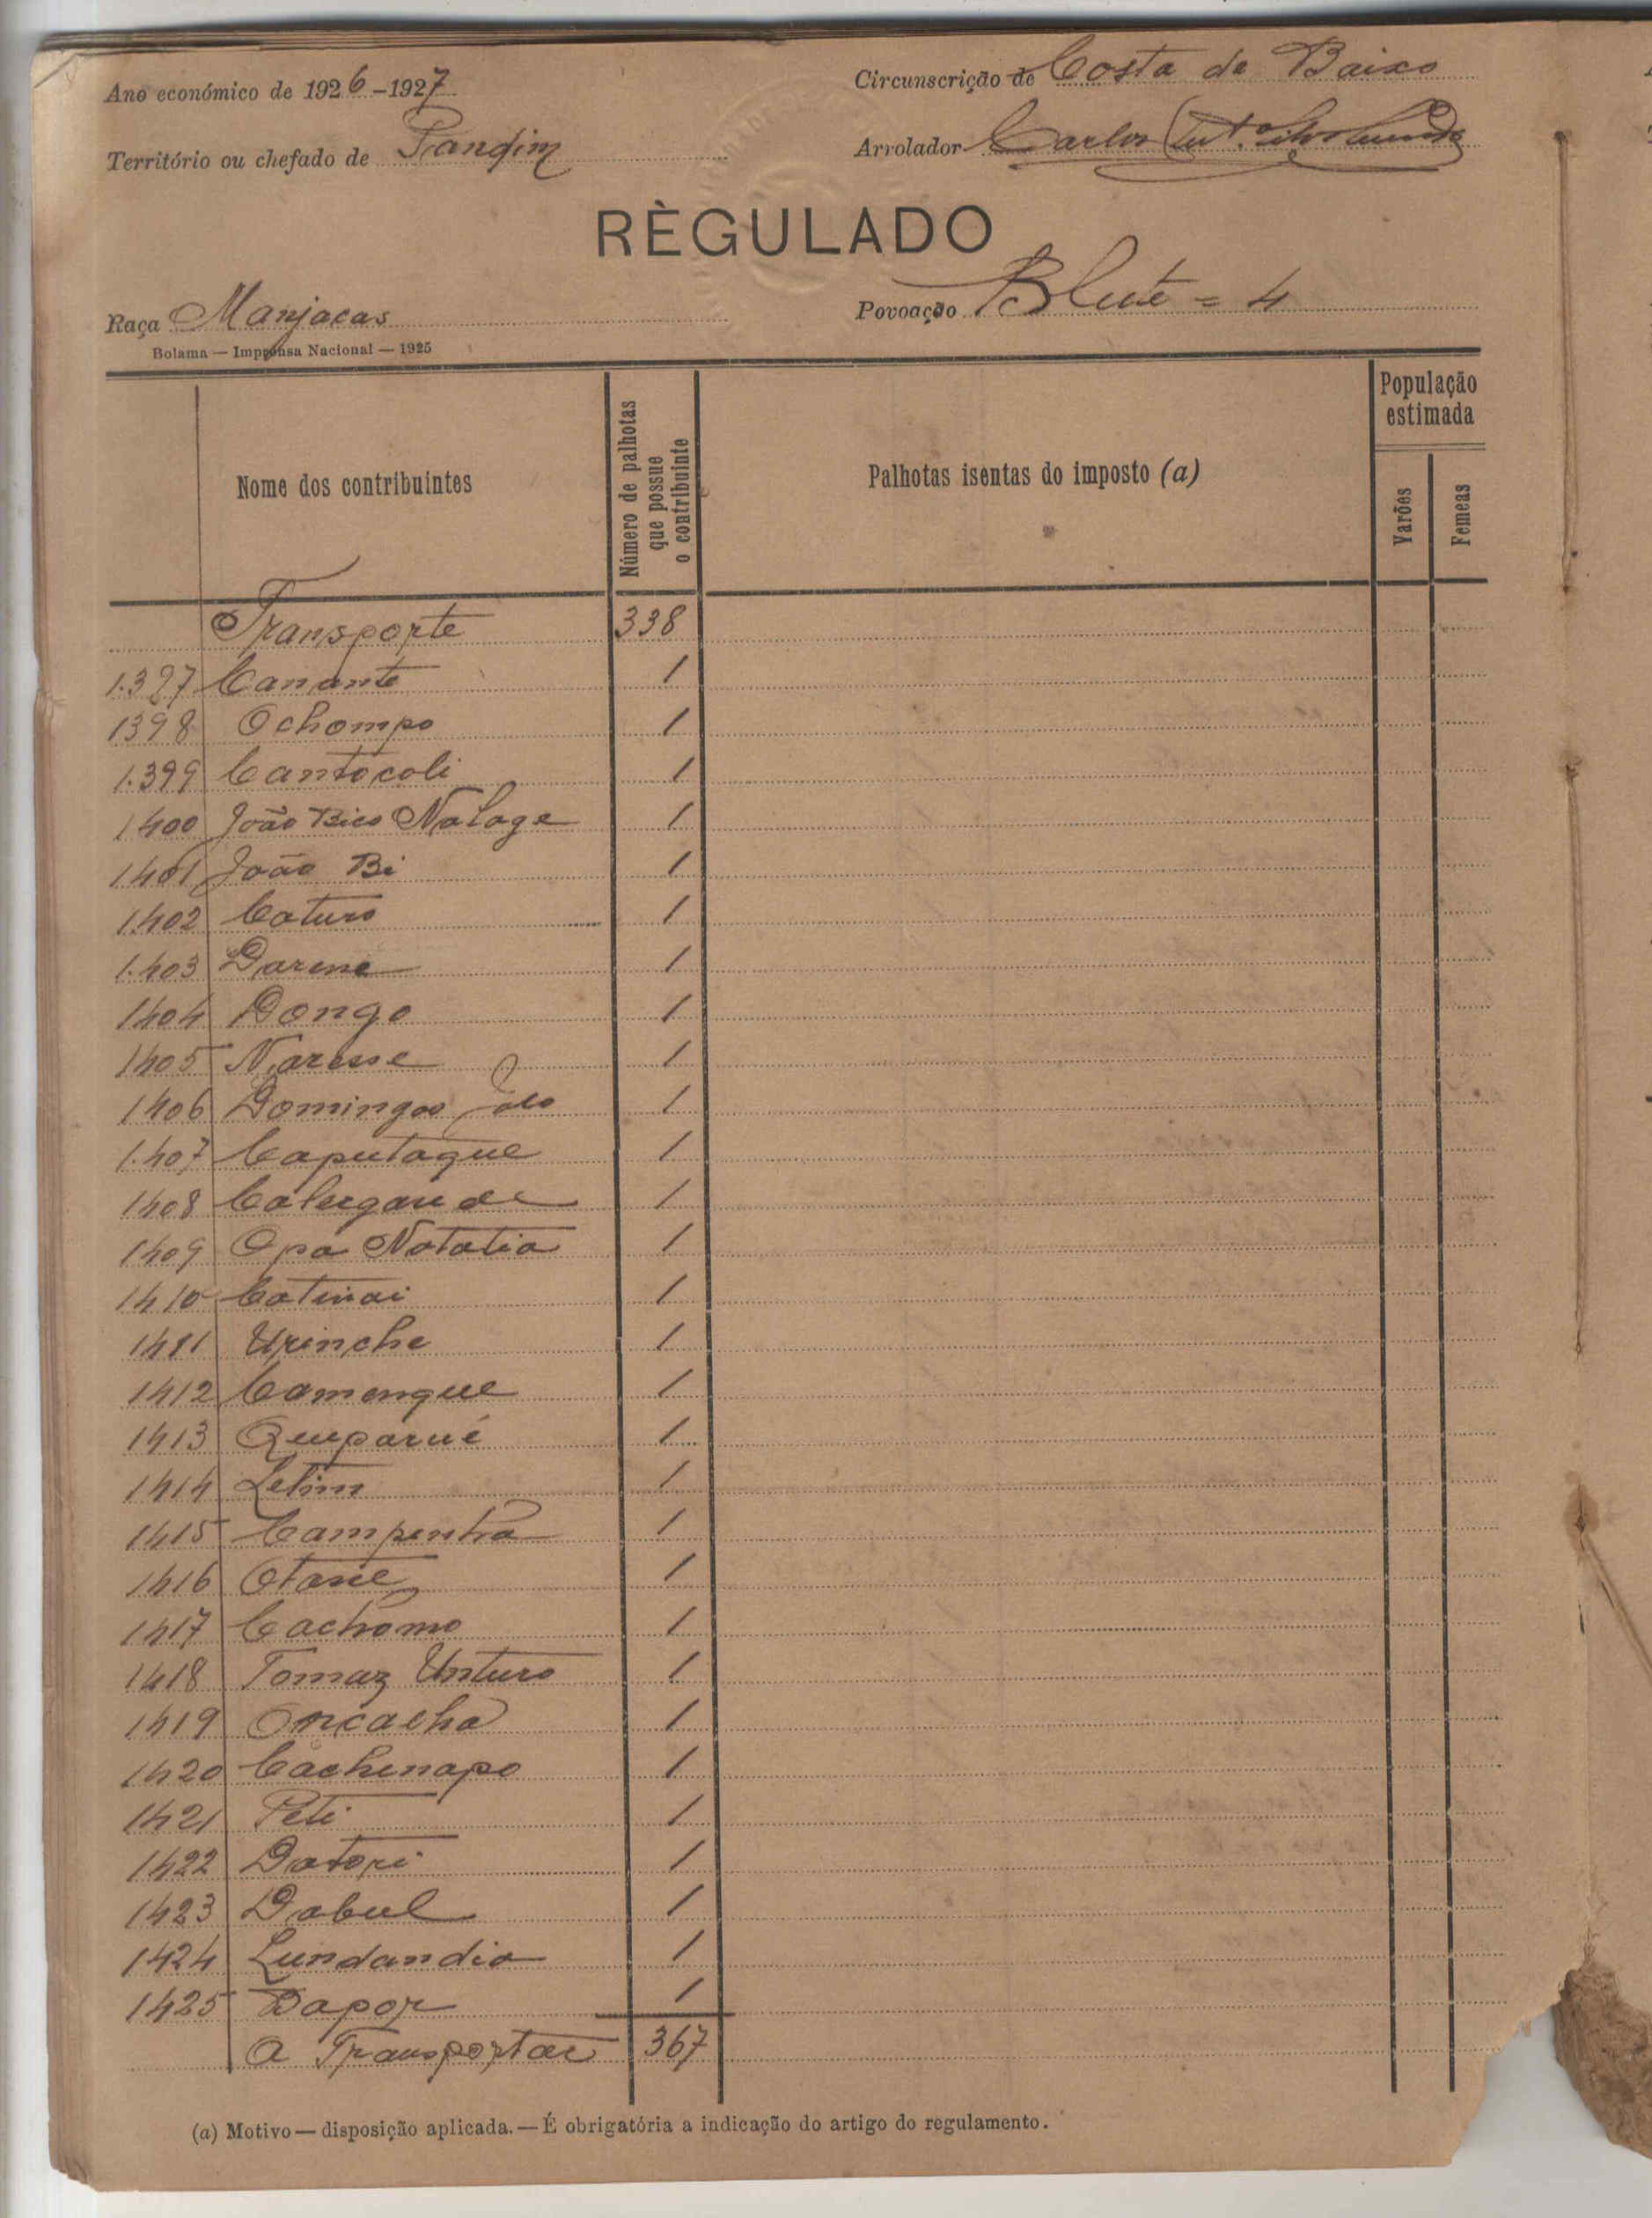 Ano económico de 1926-1927
Circunscrição de Costa de Baixo
Território ou chefado de Pandim
Arrolador Carlos
RÈGULADO
Raça Manjacas
Povoação = 4
Bolama — Imprensa Nacional — 1925
Nome dos contribuintes
Número de palhotas que possue o contribuinte
Palhotas isentas do imposto (a)
População estimada
Varões
Femeas
Transporte 338
1.397 Canante 1
1398 Ochompo 1
1.399 Cantocoli 1
1400 João Bico Nalage 1
1401 João Bi 1
1.402 Caturo 1
1.403 Darene 1
1404 Dongo 1
1405 Narese 1
1406 Domingos 1
1.407 Caputaque 1
1408 1
1409 Opa Natatia 1
1410 Catinai 1
1411 Urinche 1
1412 Camengue 1
1413 Quuparué 1
1414 1
1415 Campenha 1
1416 Otane 1
1417 Cachomo 1
1418 Tomaz Unturo 1
1419 Oncacha 1
1420 Cachenapo 1
1421 Peti 1
1422 Datopi 1
1423 Dabul 1
1424 Lundandia 1
1425 Dapor 1
A Transportar 367
(a) Motivo — disposição aplicada. — É obrigatória a indicação do artigo do regulamento.